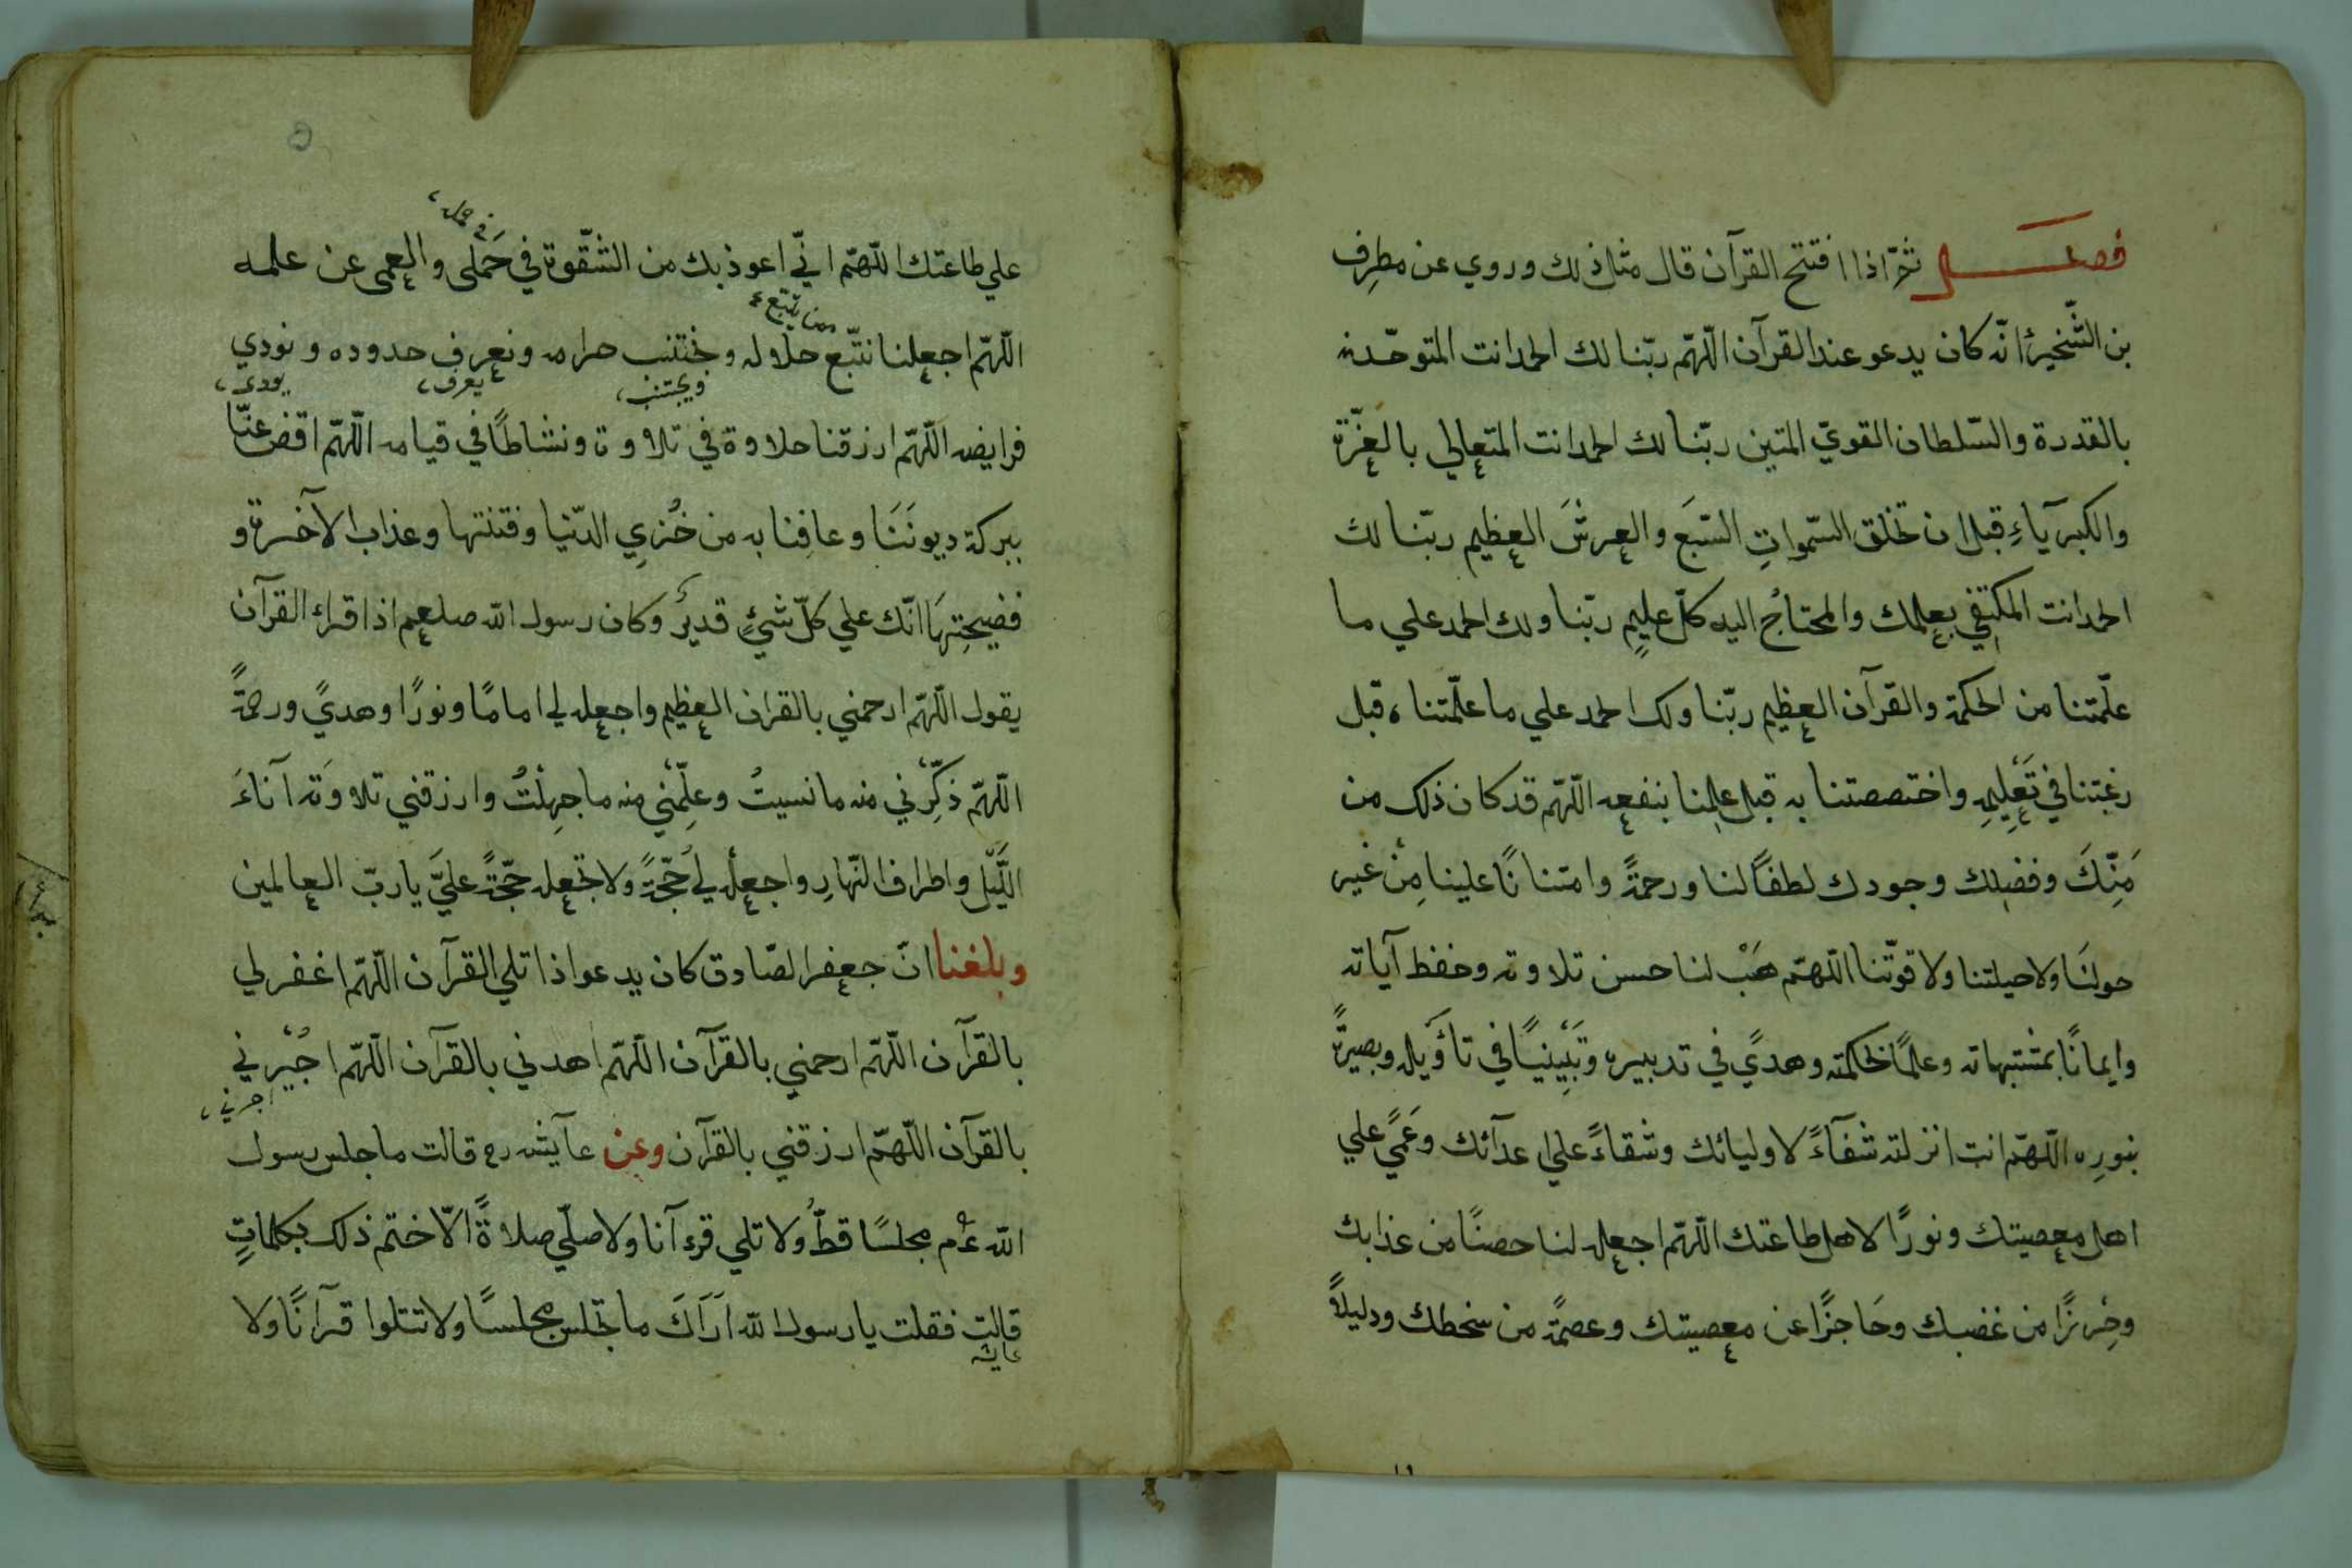 فصل ثمّ اذا افتتح القرآن قال مثل ذلك وروي عن مطرِف
بن الشّخير انّه كان يدعو عند القرآن اللّهمّ ربّنا لك الحمد انت المتوحّد
بالقدرة والسّلطان القويّ المتين ربّنا لك الحمد انت المتعالي بالعزّة
والكبرياءِ قبل ان تخلق السّمواتِ السّبَع والعرشَ العظيم ربّنا لك
الحمد انت المكتفي بعلمك والمحتاجُ اليه كلّ عليمٍ ربّنا ولك الحمد علي ما
علّمتنا من الحكمة والقرآن العظيم ربّنا ولك الحمد علي ما علّمتناه قبل
رغبتنا في تَعْلِيمِه واختصصتنا به قبل علمنا بنفعه اللّهمّ قد كان ذلك من
مَنِّكَ وفضلك وجودك لطفًا لنا ورحمةً وامتنانًا علينا مِنْ غير
حولنَا ولا حيلتنا ولا قوّتنا اللّهمّ هَبْ لنا حسن تلاوته وحفظ آياته
وايمانًا بمتشبهاته وعلمًا لحكمته وهديً في تدبيره وتَبْيِينًا في تأويله وبصيرةً
بنورِه اللّهمّ انت انزلته شفآءً لاوليائك وشقاءً علي اعدآئك وعَميً علي
اهل معصيتك ونورًا لاهل طاعتك اللّهمّ اجعله لنا حصنًا من عذابك
وحِرْزًا من غضبك وحَاجزًا عن معصيتك وعصمةً من سخطك ودليلاً
في حمله
علي طاعتك اللّهمّ انّي اعوذ بك من الشّقوة في حَملي والعمي عن علمه
ممن يتّبع
اللّهمّ اجعلنا نتّبع حلاله ونجتنب حرامه ونعرف حدوده ونودي
ويجتنب يعرف يودي
فرايضه اللّهمّ ارزقنا حلاوة في تلاوة ونشاطًا في قيامه اللّهمّ اقض عنّا
ببركة ديونَنَا وعافِنا به من خُزيِ الدّنيا وفتنتها وعذاب الآخرة و
فضيحتِهَا انّك علي كلّ شئٍ قديرٌ وكان رسول الله صلعم اذا قراء القرآن
يقول اللّهمّ ارحمني بالقران العظيم واجعله لي امامًا ونورًا وهديً ورحمةً
اللّهمّ ذكّرْني منه ما نسيتُ وعلّمْني منه ما جهِلْتُ وارزقني تلاوَته آناءَ
اللَّيْل واطراف النّهارِ واجعلْه لي حُجّةً ولا تجعله حجّةً عليَّ يا ربّ العالمين
وبلغنا انّ جعفر الصّادق كان يدعو اذا تلي القرآن اللّهمّ اغفر لي
بالقرآن اللّهمّ ارحمني بالقرآن اللّهمّ اهدني بالقرآن اللّهمّ اجُبْرني
اجرني
بالقرآن اللّهمّ ارزقني بالقرآن وعن عآيشه رع قالت ما جلس رسول
الله عم مجلسًا قطّ ولا تلي قرءآنا ولا صلّي صلاةً الّا ختم ذلك بكلماتٍ
قالت فقلت يا رسول الله اَرَاكَ ما تجلس مجلسًا ولا تتلوا قرآنًا ولا
عايشه